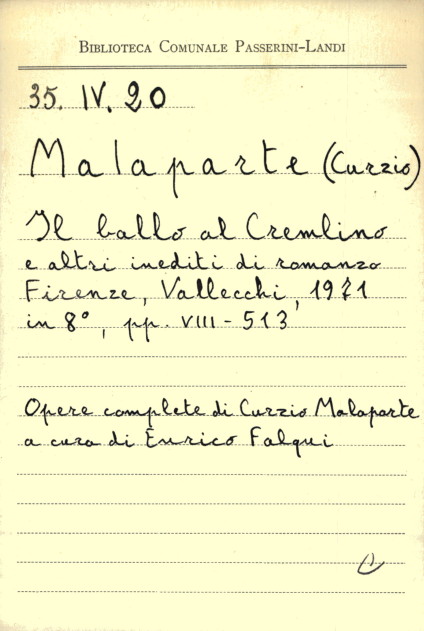 BIBLIOTECA COMUNALE PASSERINI-LANDI
35. IV. 20
Malaparte (Curzio)
Il ballo al Cremlino
e altri inediti di romanzo
Firenze, Vallecchi, 1971
in 8°, pp. VIII - 513
Opere complete di Curzio Malaparte
a cura di Enrico Falqui